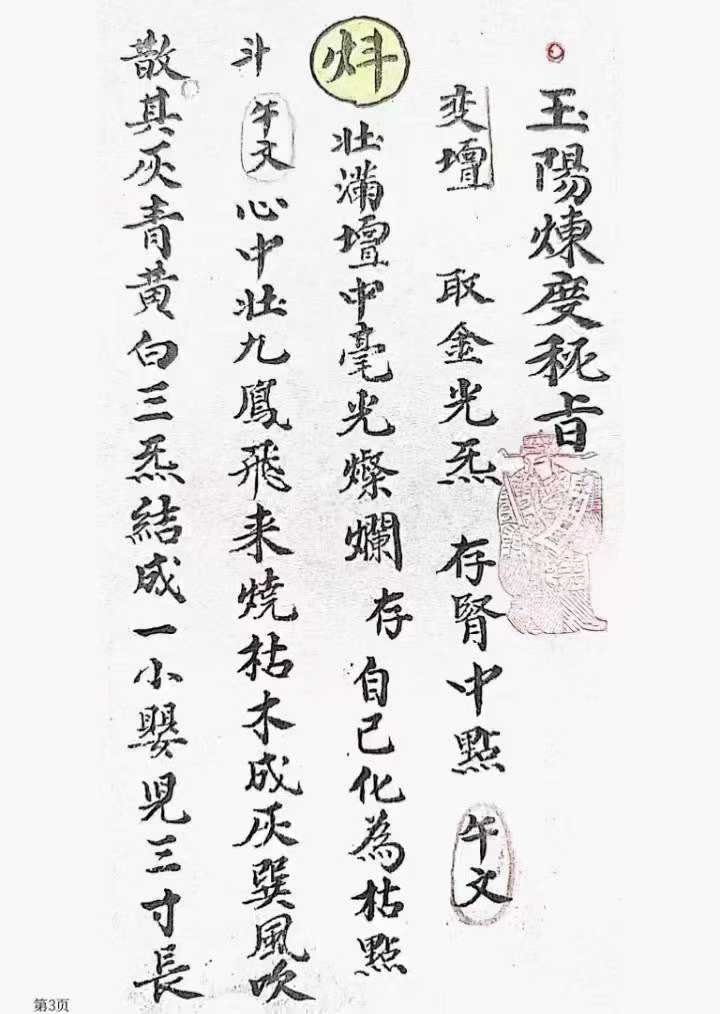 玉陽煉度秘旨
变壇 取金光炁 存腎中點 午文
炓 壯滿壇中毫光燦爛 存自己化為枯點
斗 午文 心中壯九鳳飛来燒枯木成灰巽風吹
散其灰青黄白三炁結成一小嬰児三寸長
第3页